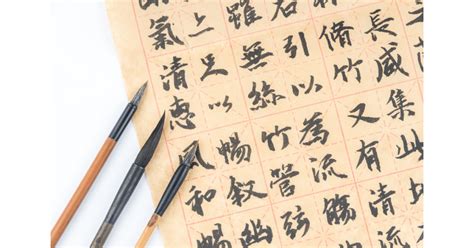 長咸集此
脩竹又有清
引以為流觴
雖無絲竹管弦
足以暢敘幽
氣清惠風和暢